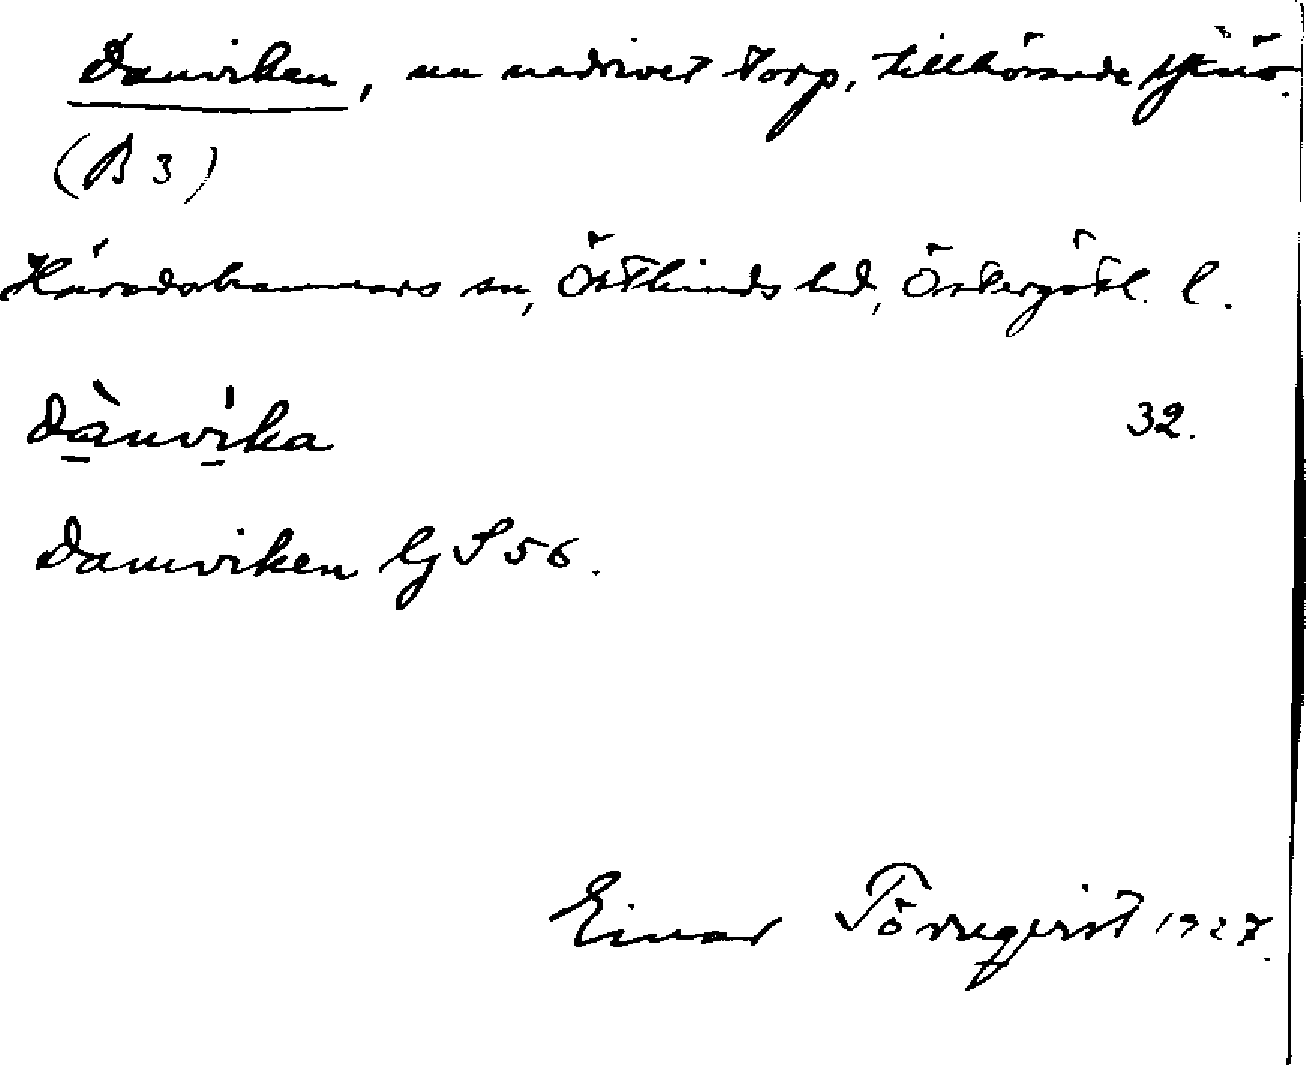 Danviken, nu nedrivet torp, tillhörande Hjinö.
(B 3)
Häradshammars sn, Östkinds hd, Östergötl. l.
dànvi̍ka 32.
Damviken Gj S 56.
Einar Törnqvist 1927.